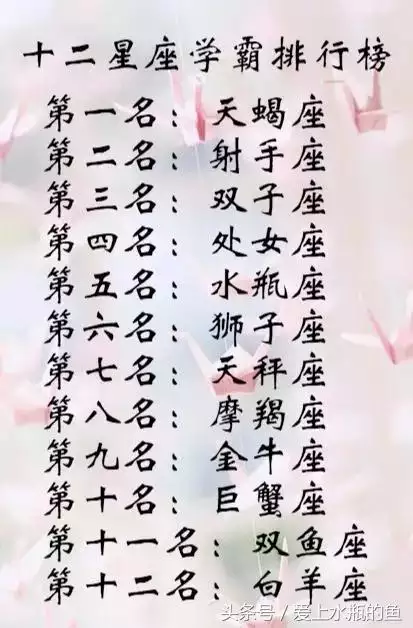 十二星座学霸排行榜
第一名：天蝎座
第二名：射手座
第三名：双子座
第四名：处女座
第五名：水瓶座
第六名：狮子座
第七名：天秤座
第八名：摩羯座
第九名：金牛座
第十名：巨蟹座
第十一名：双鱼座
第十二名：白羊座
头条号／爱上水瓶的鱼